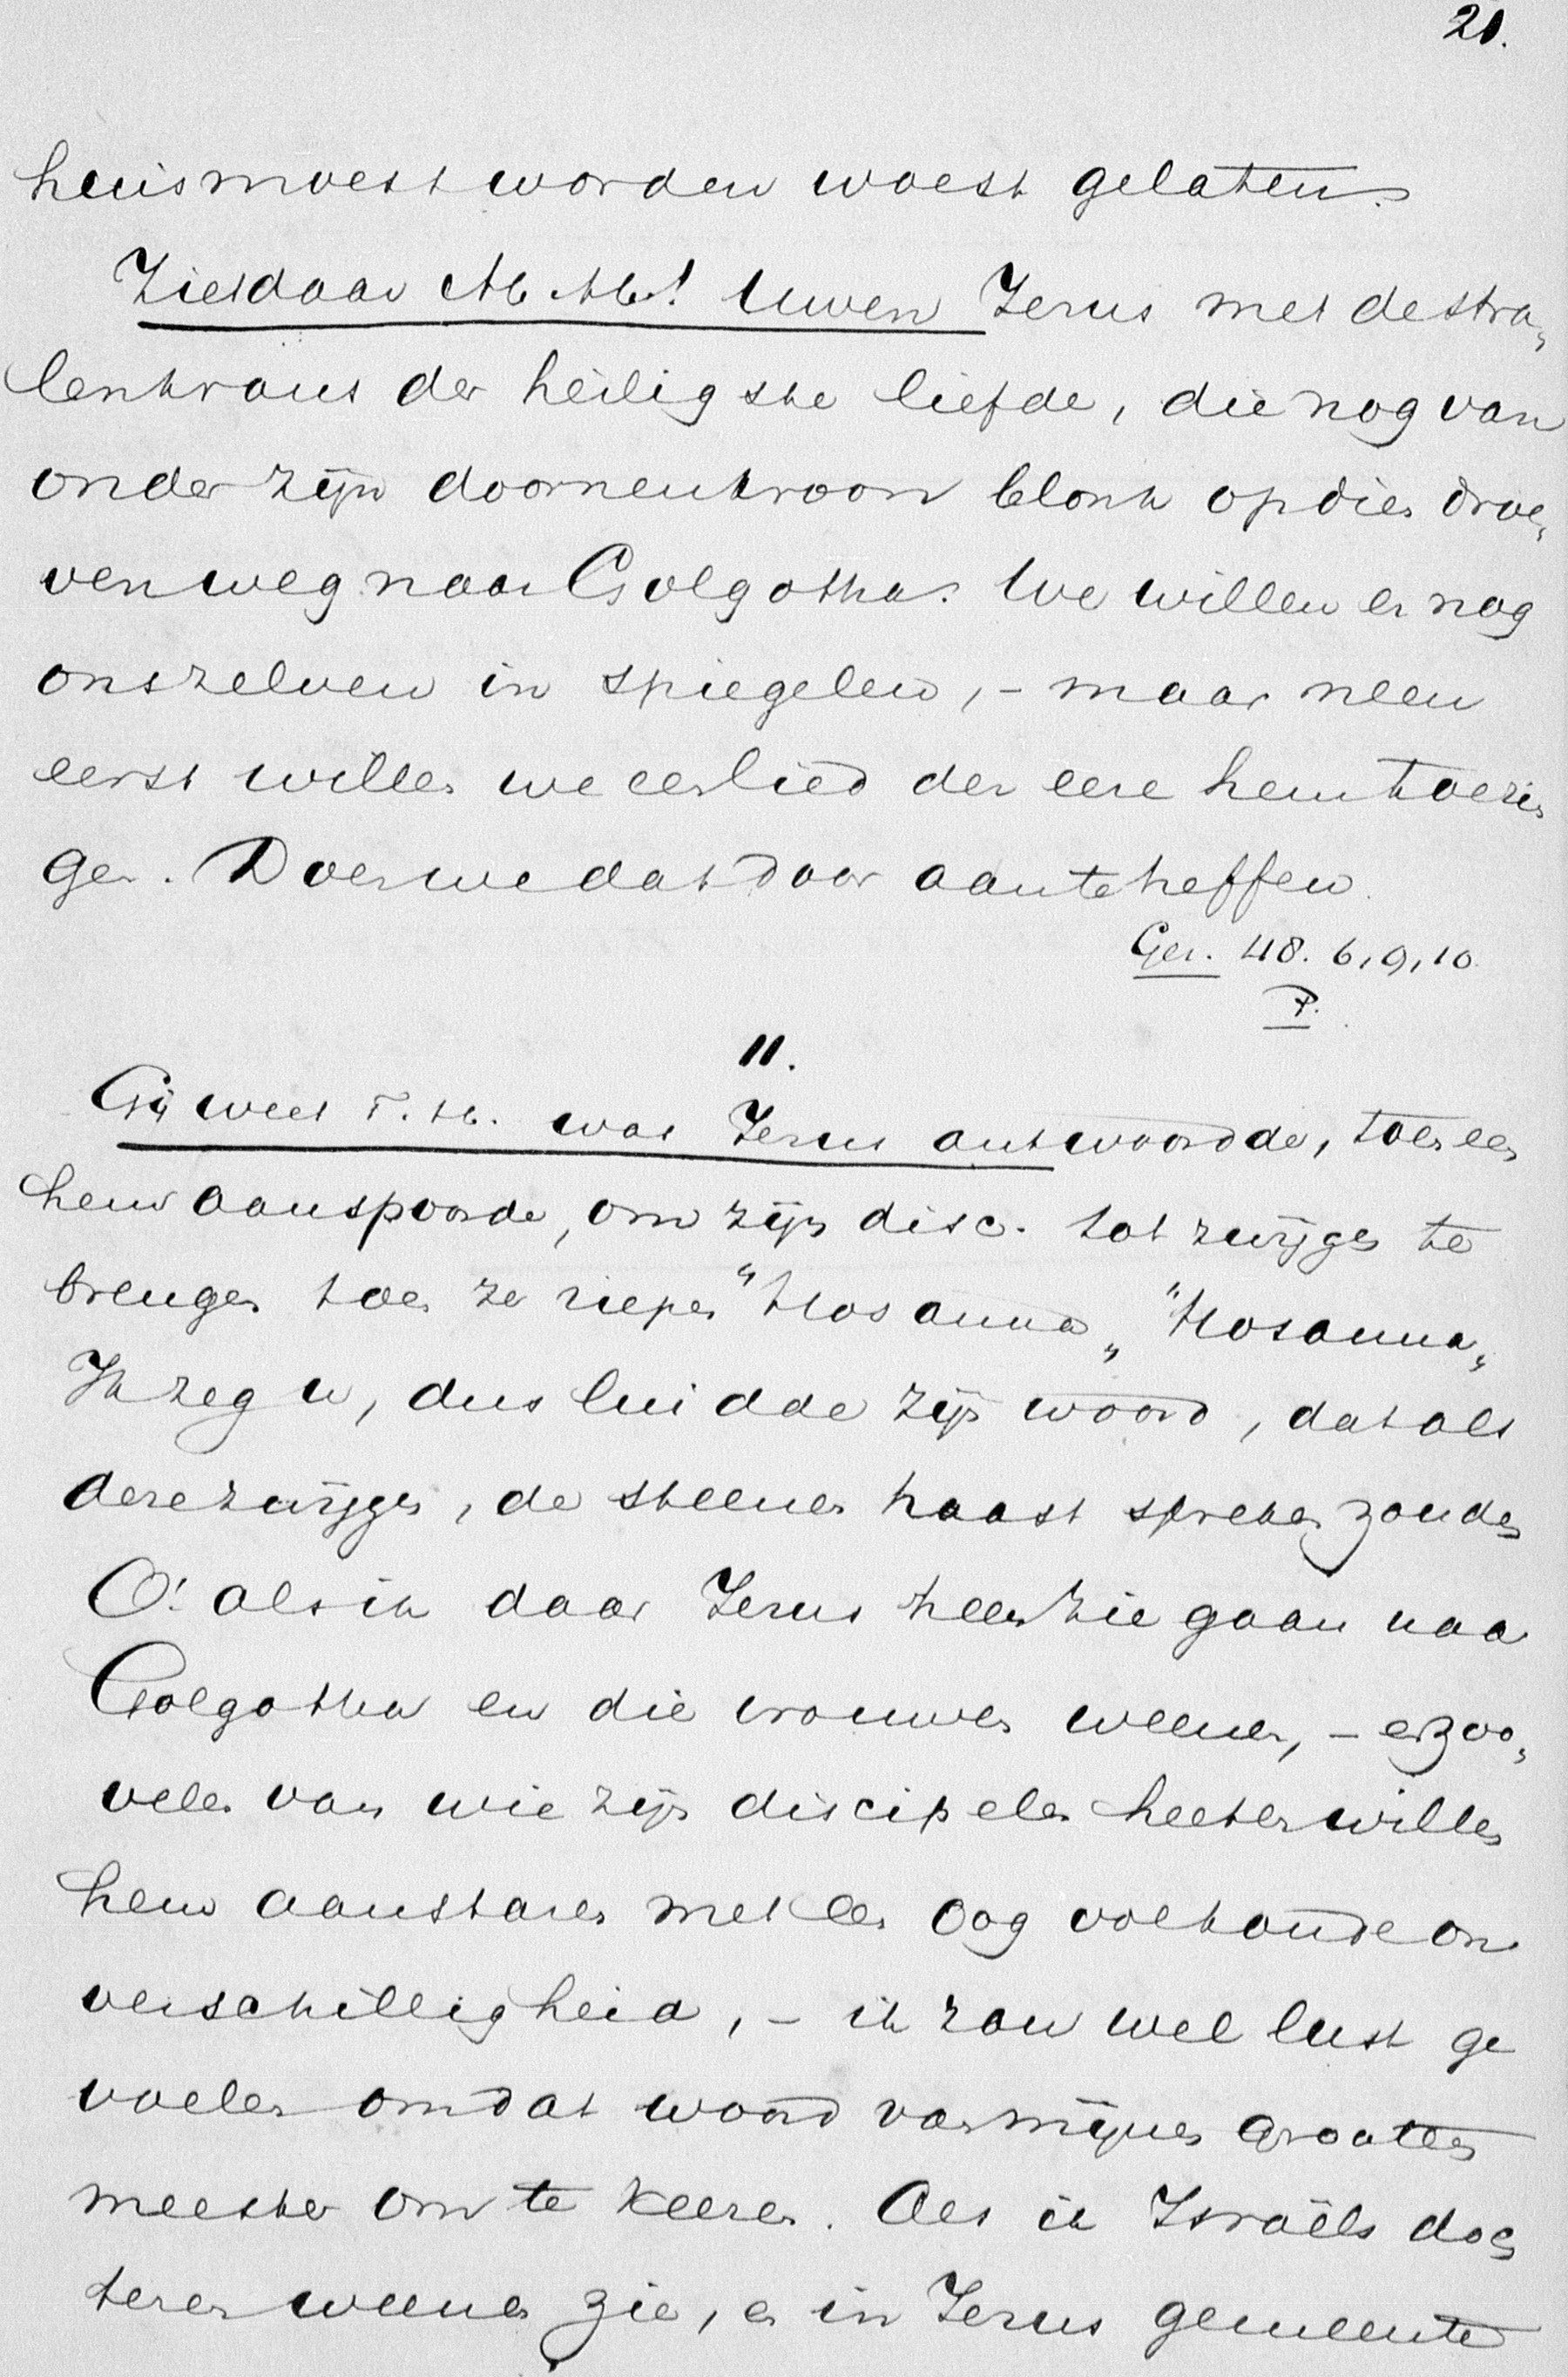 21.
huis moest worden woest gelaten.
Ziedaar M. M.! Uwen Jezus met de stra„
lenkrans der heiligste liefde, die nog van
onder zijn doornenkroon blonk op dien droe„
ven weg naar Golgotha. We willen er nog
onszelven in spiegelen, - maar neen
eerst willen we een lied der eere hem toezin
gen. Doen we dat door aan te heffen.
Gez. 48. 6, 9, 10.
P.
II.
Gij weet T. H. wat Jezus antwoordde, toen een
hem aanspoorde, om zijn disc. tot zwijgen te
brengen toen ze riepen "Hosanna„ "Hosanna„
Ik zeg u, dus luidde zijn woord, dat als
deze zwijgen, de steenen haast spreken zouden
O! als ik daar Jezus heen zie gaan naar
Golgotha en die vrouwen weenen, - en zoo„
velen van wie zijn discipelen heeten willen
hem aanstaren met een oog vol koude on
verschilligheid, - ik zou wel lust ge
voelen om dat woord van mijnen grooten
meester om te keeren. Als ik Israëls doch
teren weenen zie, en in Jezus gemeente